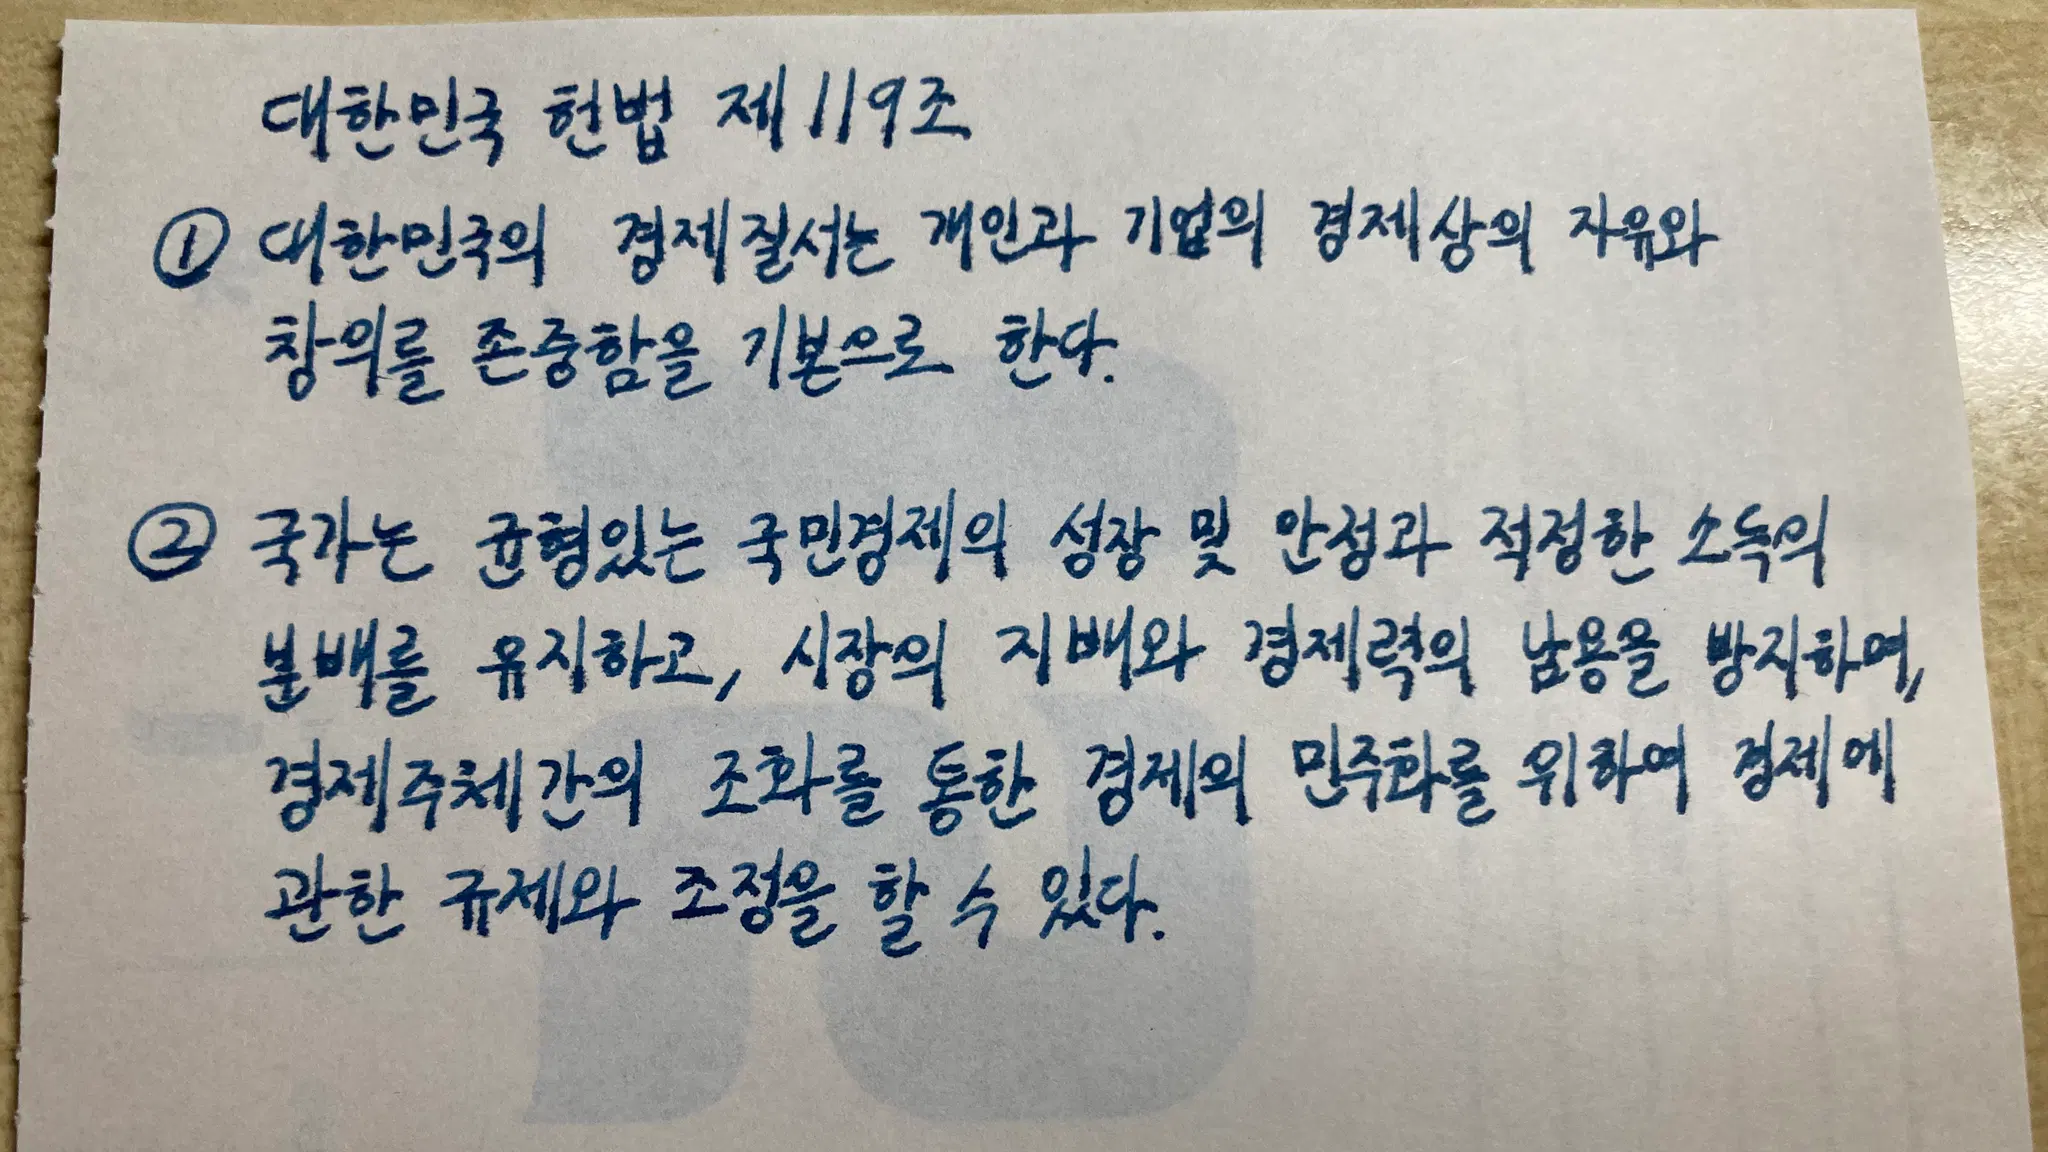 대한민국 헌법 제119조
① 대한민국의 경제질서는 개인과 기업의 경제상의 자유와
창의를 존중함을 기본으로 한다.
② 국가는 균형있는 국민경제의 성장 및 안정과 적정한 소득의
분배를 유지하고, 시장의 지배와 경제력의 남용을 방지하며,
경제주체간의 조화를 통한 경제의 민주화를 위하여 경제에
관한 규제와 조정을 할 수 있다.